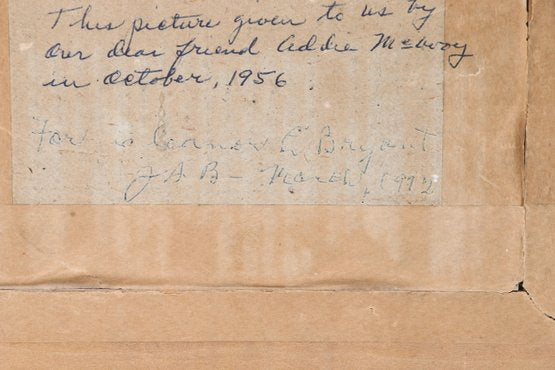 This picture given to us by
our dear friend Addie McEvoy
in October, 1956
is Eleanor C. Bryant
J A B - March, 1992